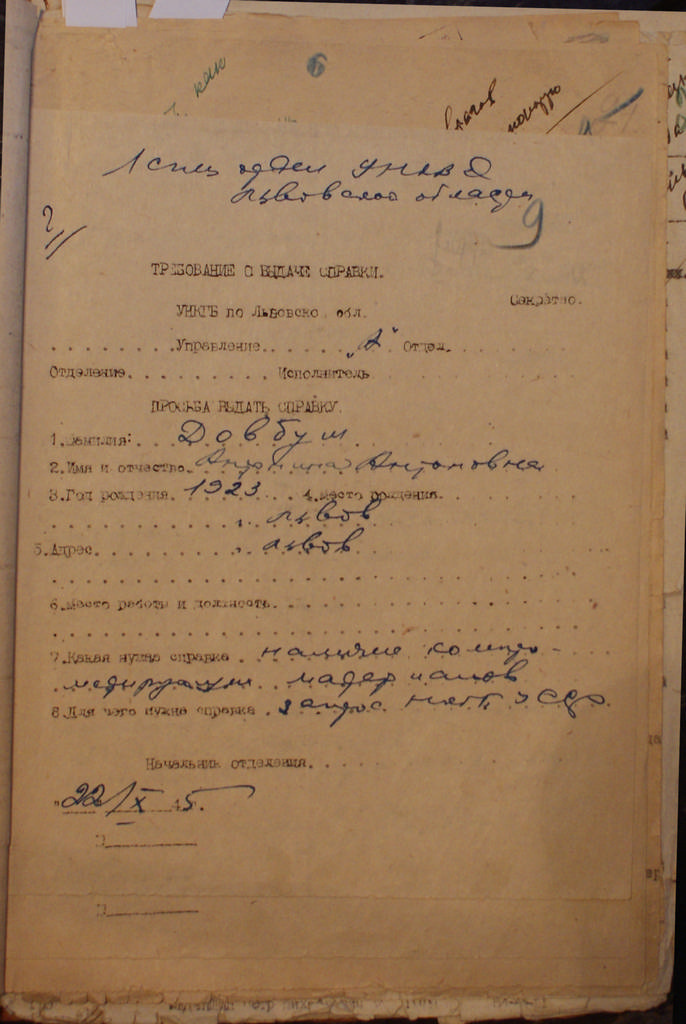 6
1 спец отдел УНКВД
Львовской области
9
ТРЕБОВАНИЕ О ВЫДАЧЕ СПРАВКИ.
Секретно.
УНКГБ по Львовско обл.
. . . . . . . .Управление. . . . . „А“ Отдел.
Отделение. . . . . . . . . Исполнитель
ПРОСЬБА ВЫДАТЬ СПРАВКУ
1.Фамилия: . . Довбуш
2.Имя и отчество. Антонина Антоновна
3.Год рождения. 1923 . . 4.Место рождения.
Львов
5.Адрес. . . . . . . . . Львов
6.Место работы и должность.
7.Какая нужна справка . наличие компро-
метирующих материалов
8.Для чего нужна справка . запрос НКГБ УССР
Начальник отделения. . . .
"22/IX 45.